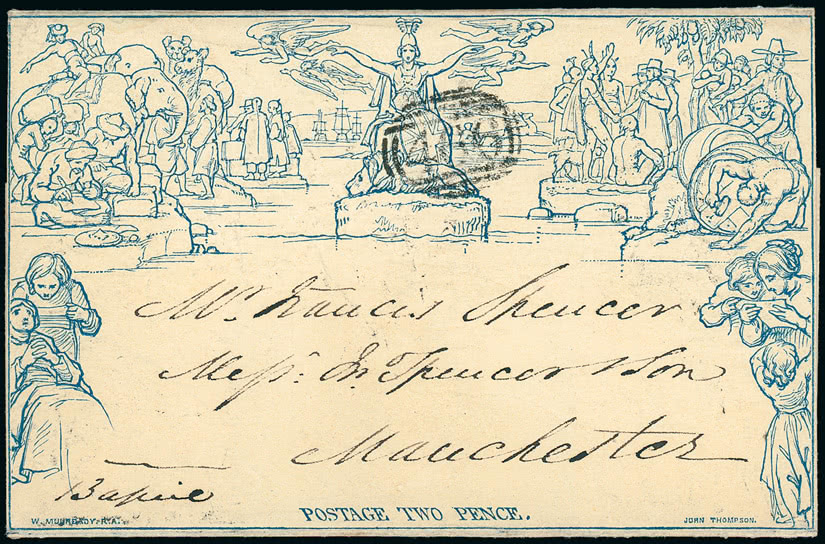 Mr. Francis Spencer
Messrs. Jn. Spencer & Son
Manchester
POSTAGE TWO PENCE.
W. MULREADY. R.A.
JOHN THOMPSON.